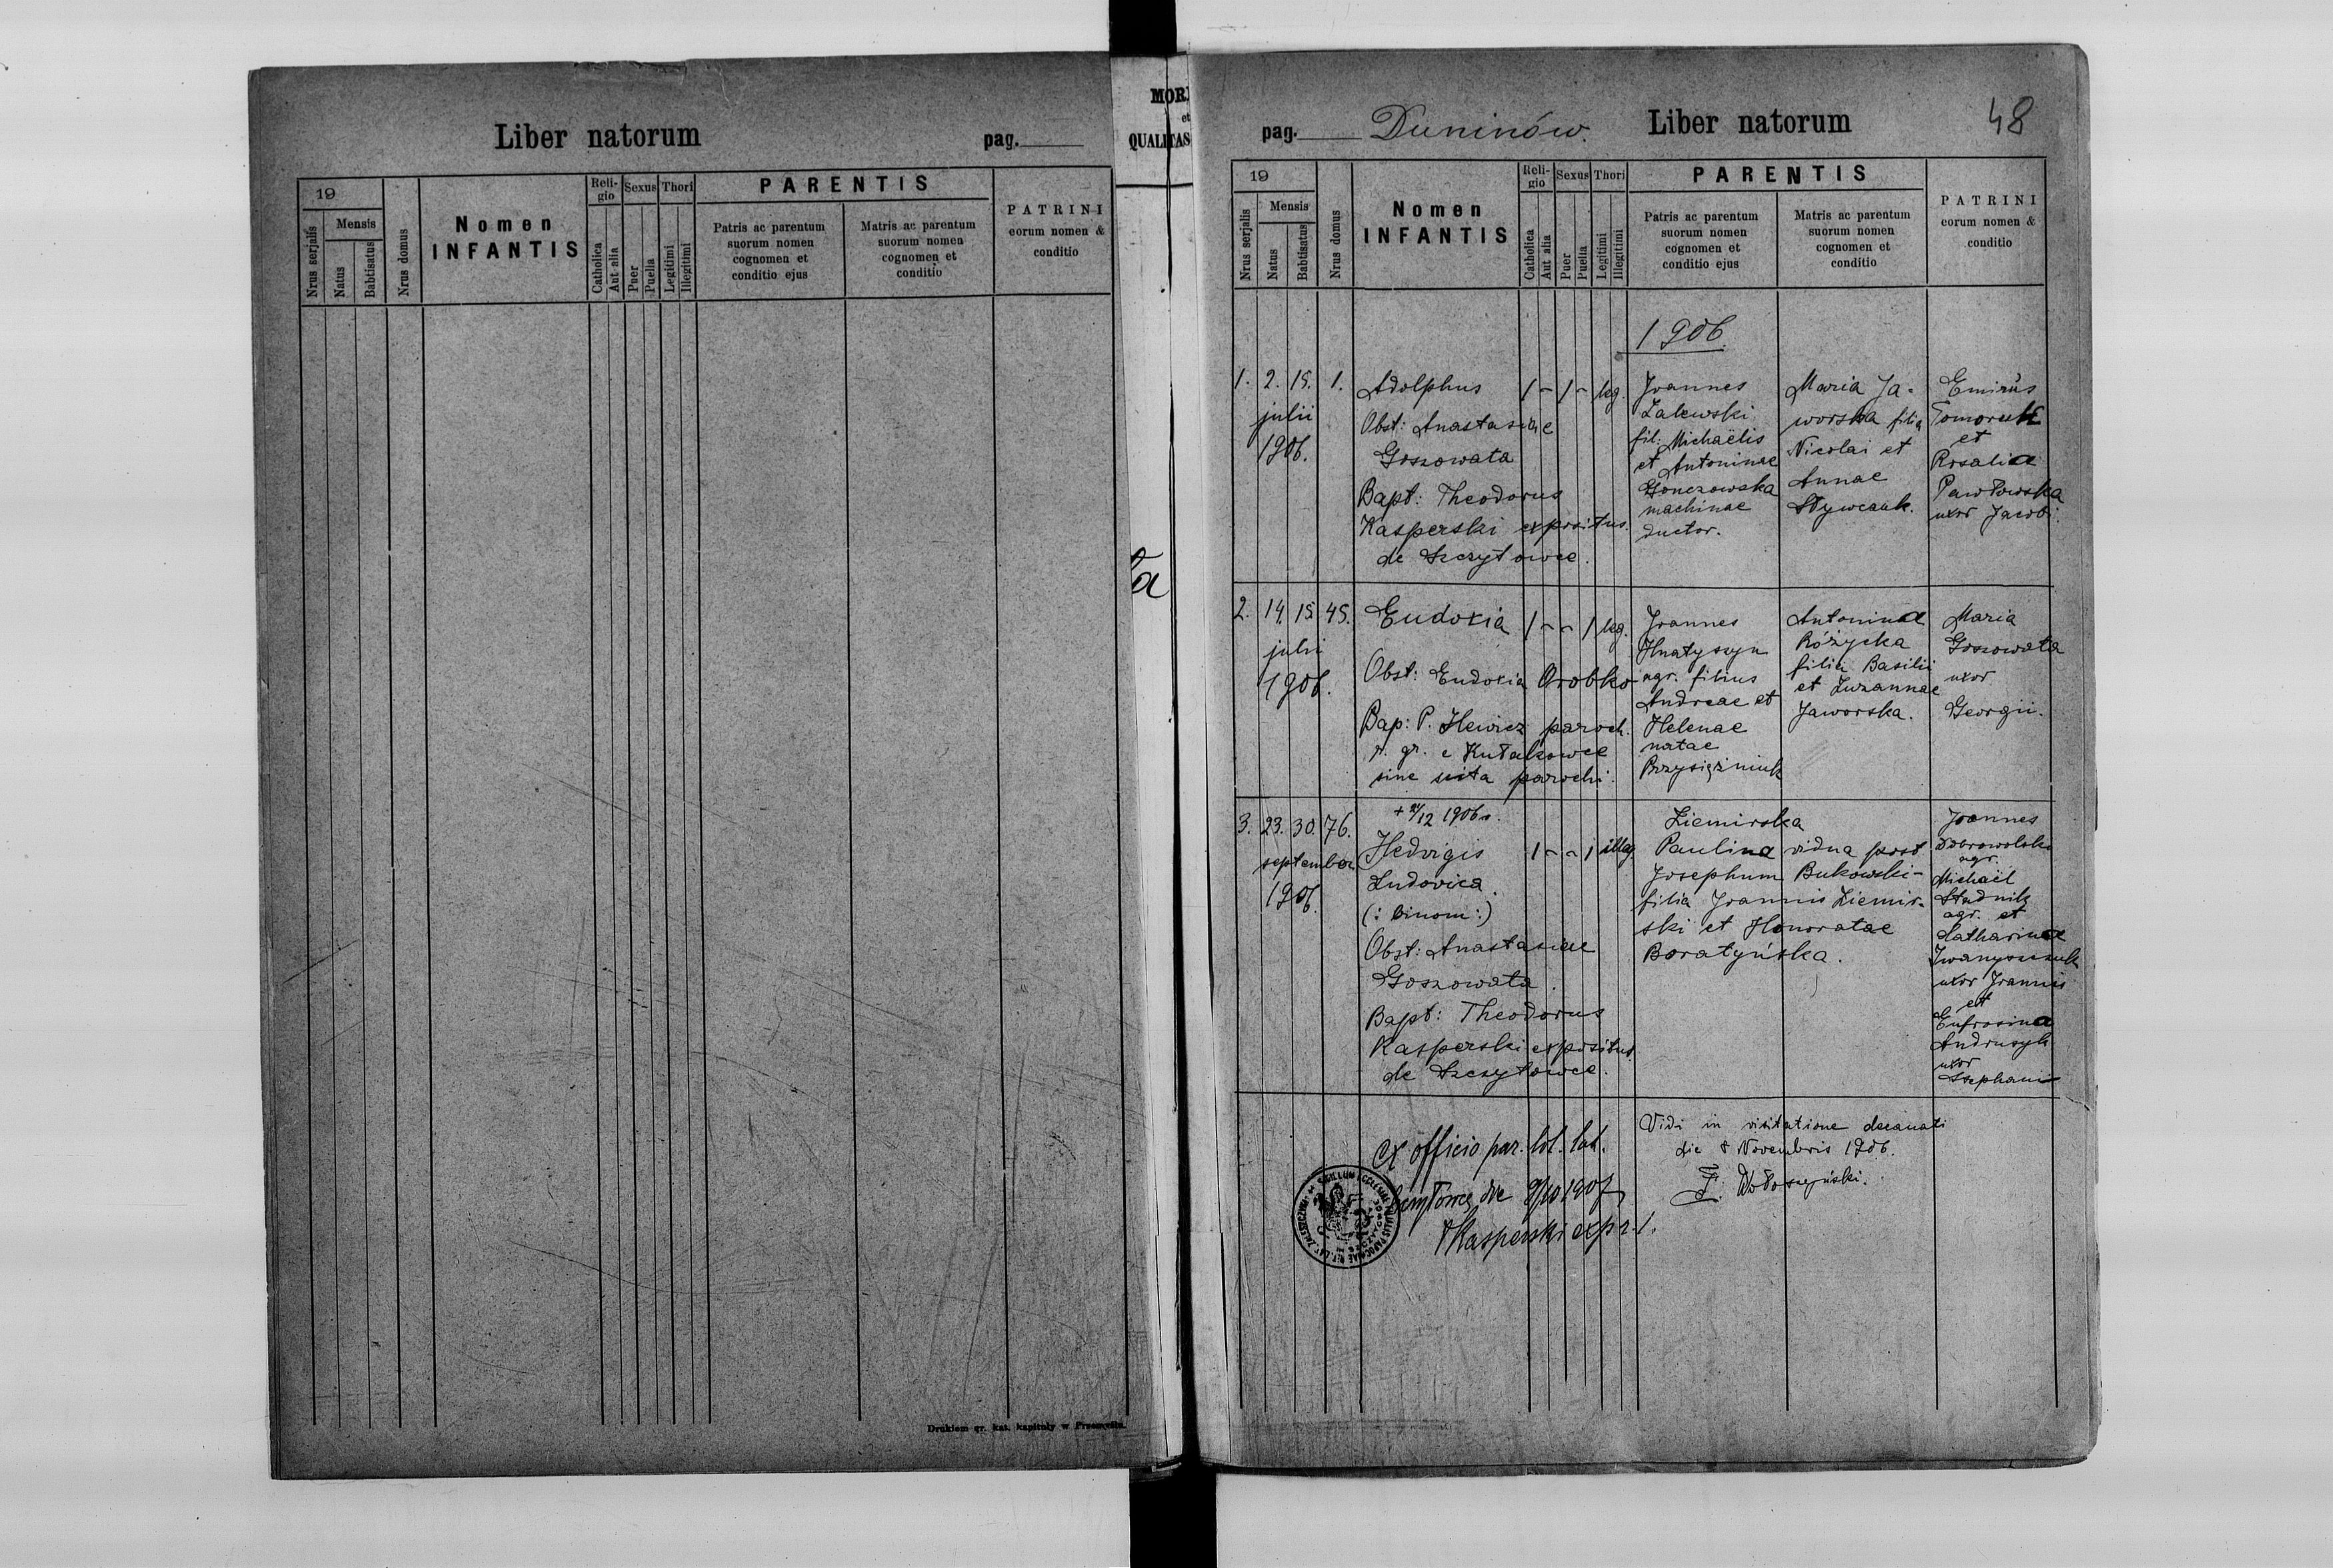 Liber natorum
pag.
19
Mensis
Nrus serjalis
Natus
Babtisatus
Nrus domus
Nomen
INFANTIS
Reli-
gio
Sexus
Thori
Catholica
Aut alia
Puer
Puella
Legitimi
Illegitimi
PARENTIS
Patris ac parentum
suorum nomen
cognomen et
conditio ejus
Matris ac parentum
suorum nomen
cognomen et
conditio
PATRINI
eorum nomen &
conditio
Drukiem gr. kat. kapituły w Przemyślu.
MOR
et
QUALITAS
a
pag.
Duninów.
Liber natorum
48
19
Mensis
Nrus serjalis
Natus
Babtisatus
Nrus domus
Nomen
INFANTIS
Reli-
gio
Sexus
Thori
Catholica
Aut alia
Puer
Puella
Legitimi
Illegitimi
PARENTIS
Patris ac parentum
suorum nomen
cognomen et
conditio ejus
Matris ac parentum
suorum nomen
cognomen et
conditio
PATRINI
eorum nomen &
conditio
1906.
1. 2. 15. 1.
julii
1906.
Adolphus
Obst: Anastasiae
Goszowata
Bapt: Theodorus
Kasperski expositus
de Szczytowce.
1 - 1 - leg.
Joannes
Zalewski
fil: Michaëlis
et Antoninae
Gonczowska
machinae
ductor.
Maria Ja-
worska filia
Nicolai et
Annae
et
Rosalia
Pawłowska
uxor Jacobi.
2. 14. 15. 45.
julii
1906.
Eudoxia
Obst: Eudoxia Orobko
Bap: P. Hewicz paroch.
r. gr. e Kułakowce
sine scita parochi.
1 - - 1 leg.
Joannes
Hnatyszyn
agr. filius
Andreae et
Helenae
natae
Przysiężniuk
Antonina
Różycka
filia Basilii
et Zuzannae
Jaworska.
Maria
Goszowata
uxor
Georgii.
3. 23. 30. 76.
september
1906.
1906
Hedvigis
Ludovica.
(: binom :)
Obst: Anastasiae
Goszowata.
Bapt: Theodorus
Kasperski expositus
de Szczytowce.
1 - - 1 illeg.
Ziemirska
Paulina vidua post
Josephum Bukowski -
filia Joannis Ziemir-
ski et Honoratae
Boratyńska.
Joannes
Dobrowolski
agr.
Michaël
Studnik
agr. et
Catharina
uxor Joannis
et
Eufrosina
uxor
Stephani
ex officio par. lat.
Kasperski exp r. l.
Vidi in visitatione decanati
die 8 Novembris 1906.
F. Wołoszyński.